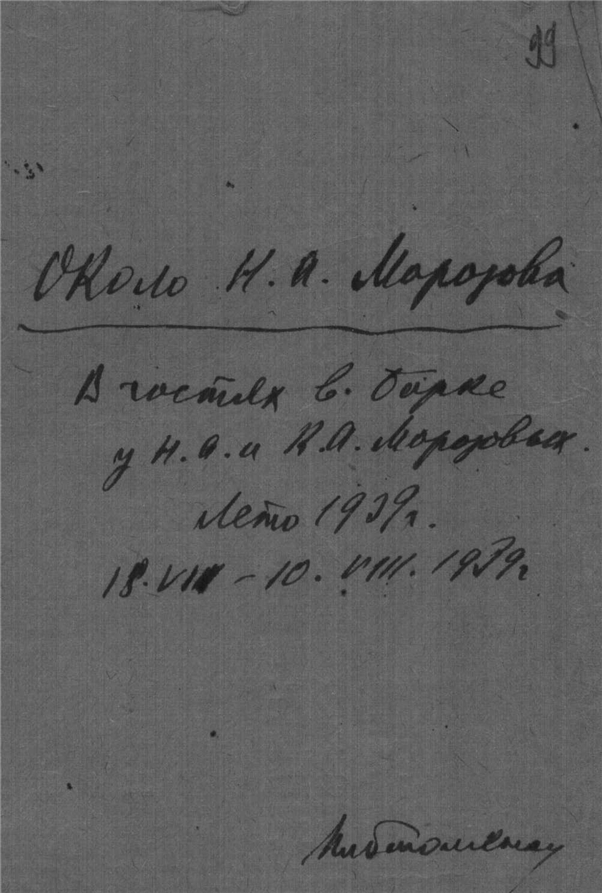 99
Около Н. А. Морозова
В гостях в. Борке
у Н. А. и К. А. Морозовых.
Лето 1939 г.
10. VIII. 1939 г